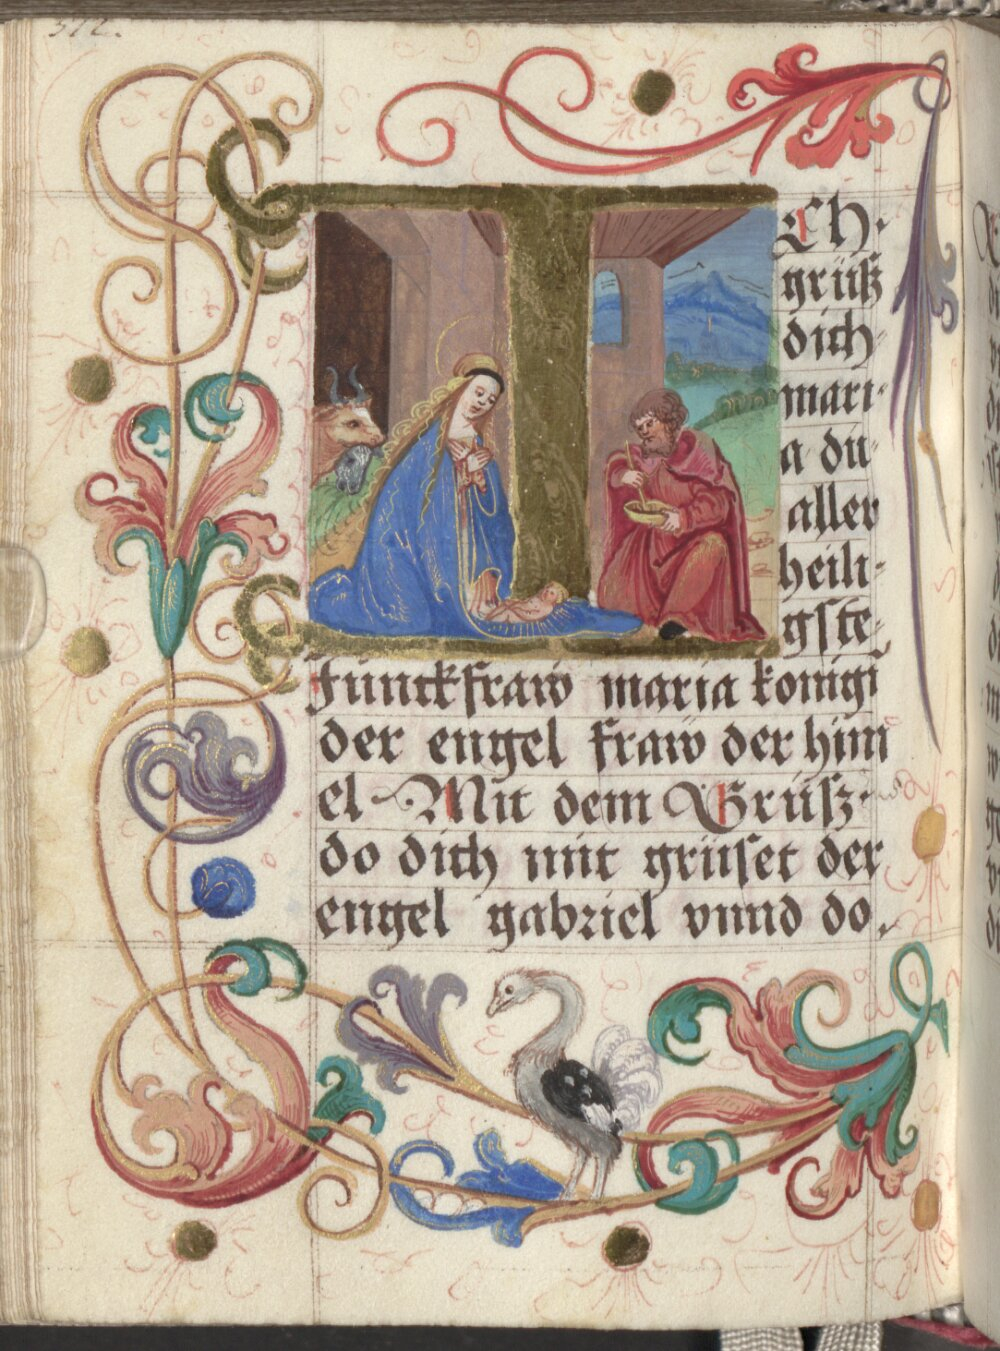 312.
I
Ch
grüß
dich
mari-
a du
aller
heili-
gste
Junckfraw maria konigī
der engel fraw der him
el Mit dem Grüsz
do dich mit grüset der
engel gabriel vnnd do